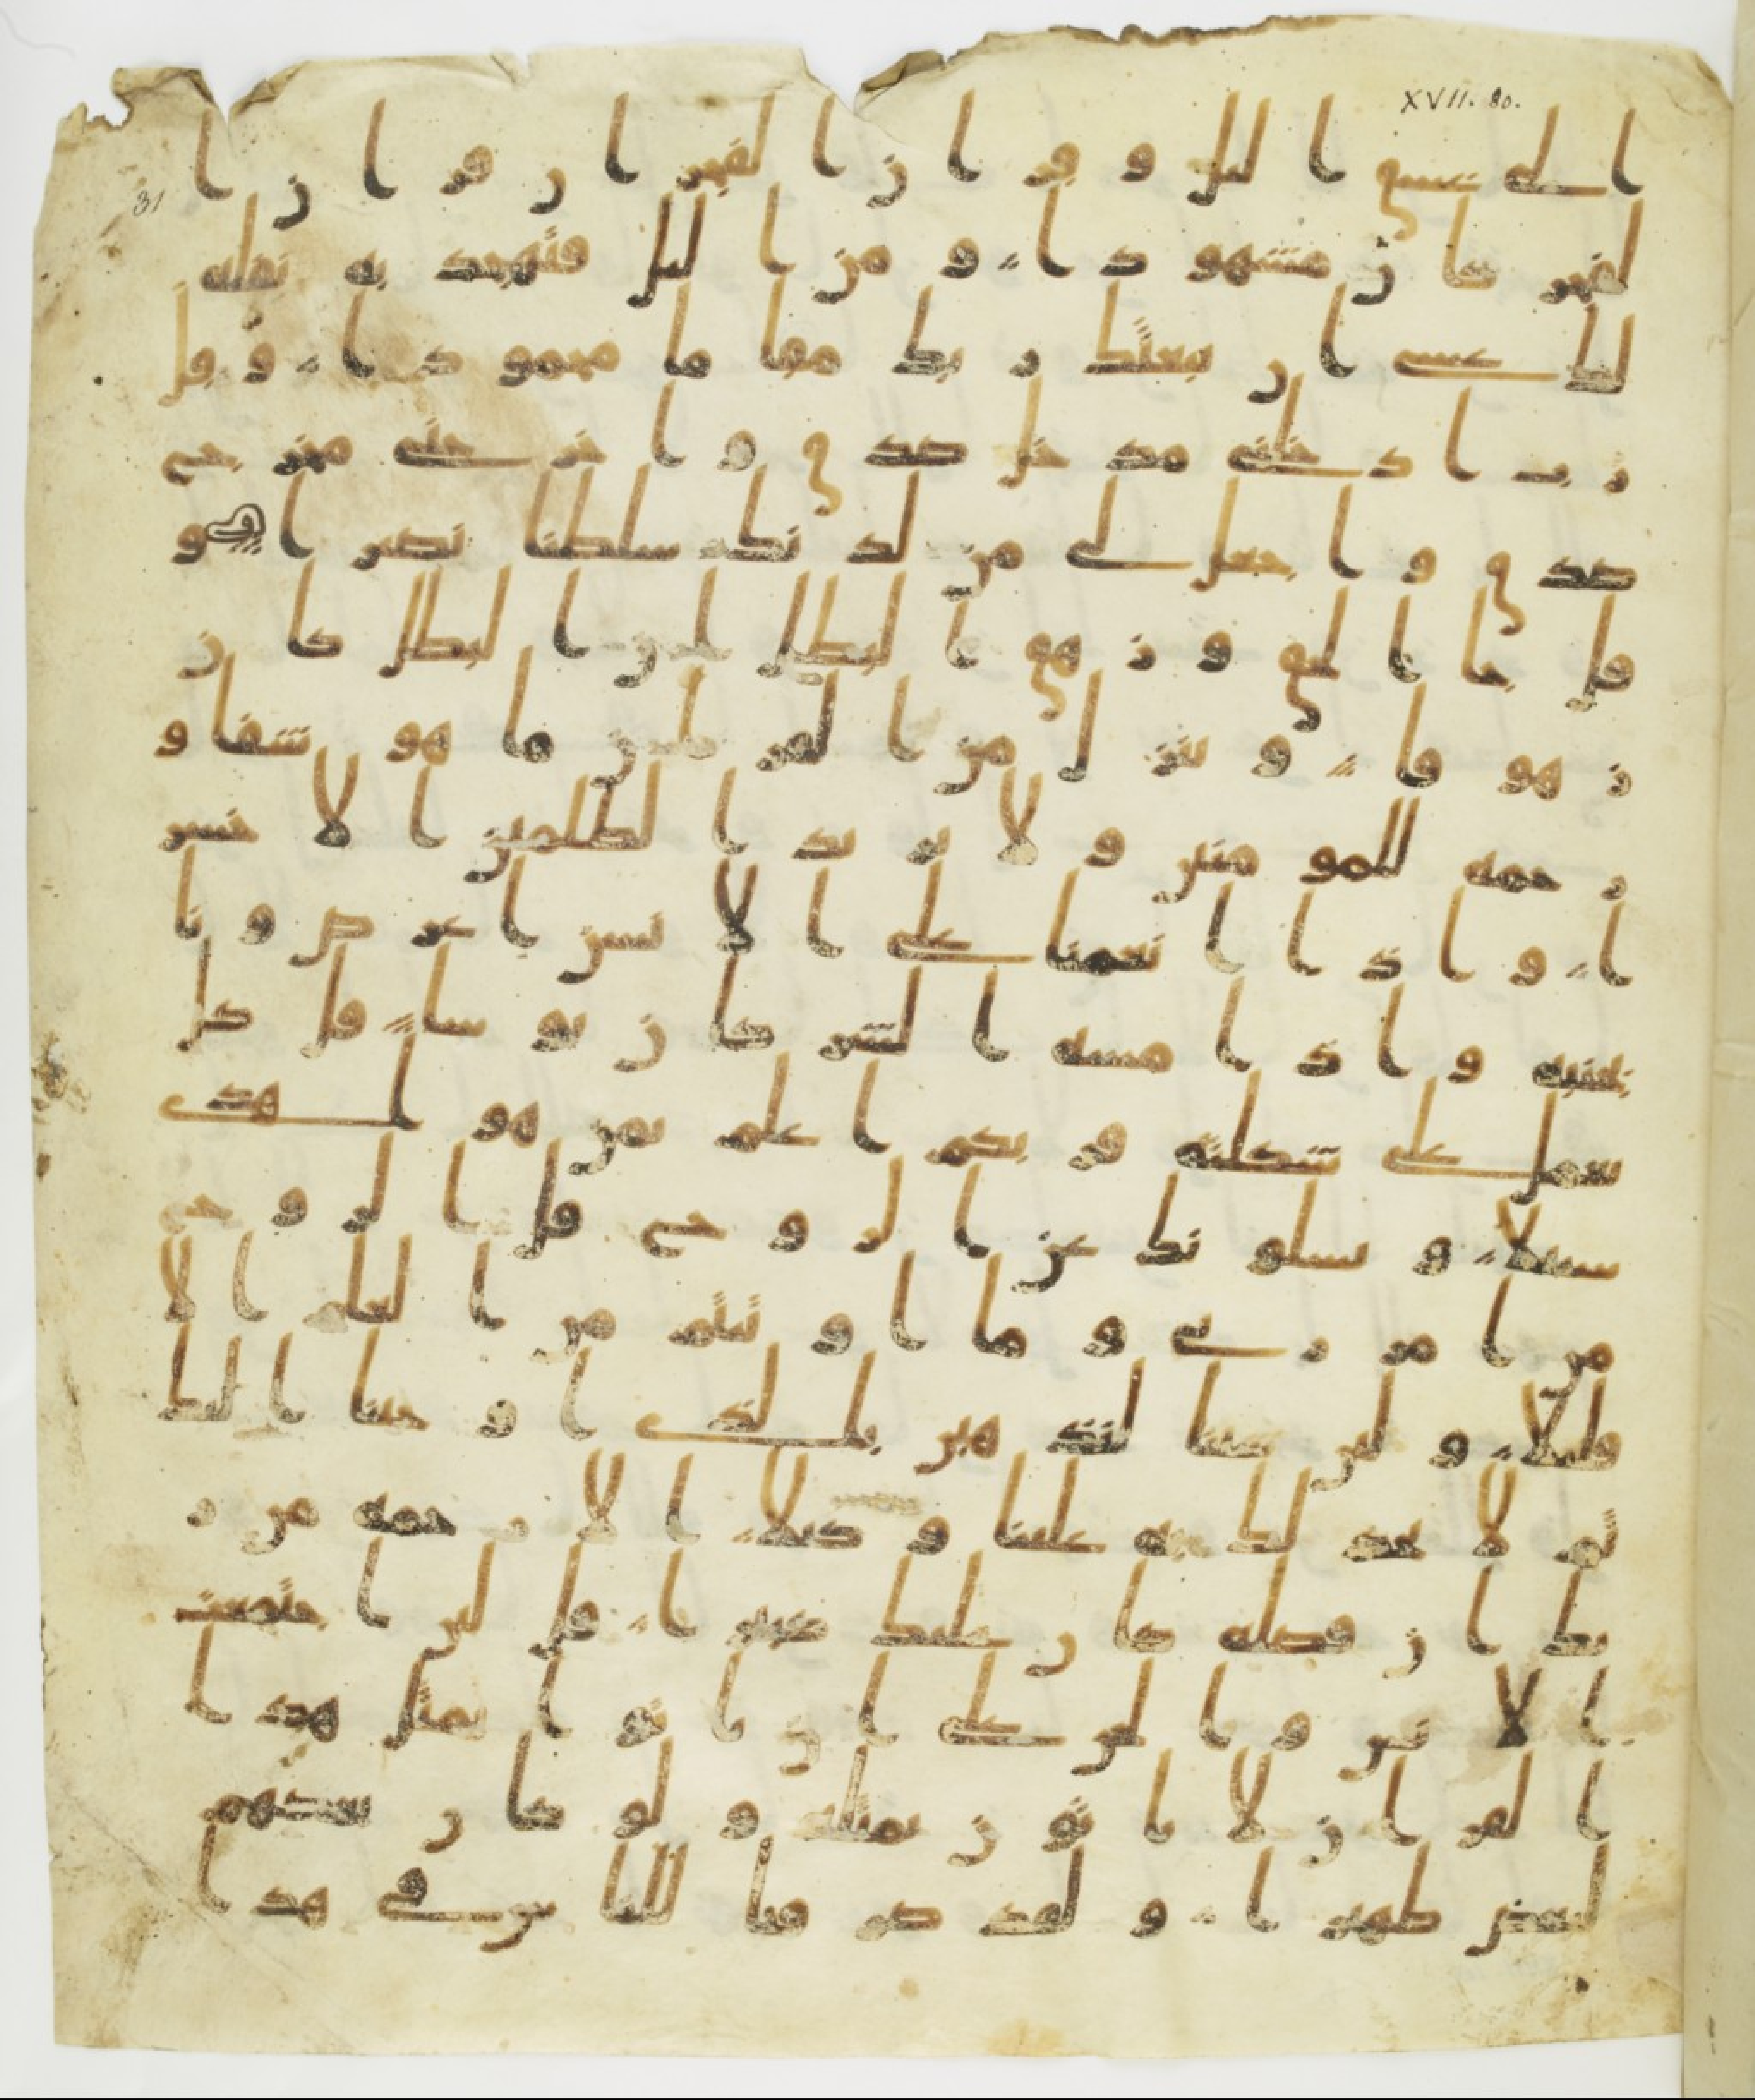 XVII. 80.
31
الى غسق اليل و قران الفجر ان قران ا
لفجر كان مشهودا و من اليل فتهجد به نفله
لك عسى ان يبعثك ربك مقاما محمودا و قل
رب ادخلنى مدخل صدق و اخرجنى مخرج
صدق و اجعل لى من لدنك سلطنا نصيرا و
قل جا الحق و زهق البطل ان البطل كان
زهوقا و ننزل من القران ما هو شفا و
رحمه للمومنين و لا يزيد الظلمين الا خسر
ا و اذا انعمنا على الانسن اعرض و نا
بجنبه و اذا مسه الشر كان يوسا قل كل
يعمل على شكلته فربكم اعلم بمن هو اهدى
سبيلا و يسلونك عن الروح قل الروح
من امر ربى و ما اوتيتم من العلم الا
قليلا و لين شينا لنذهبن بالذى اوحينا اليك
ثم لا تجد لك به علينا وكيلا الا رحمه من ر
بك ان فضله كان عليك كبيرا قل لين اجتمعت
الانس و الجن على ان ياتوا بمثل هذا
القران لا ياتون بمثله و لو كان بعضهم
لبعض ظهيرا و لقد صرفنا للناس فى هذا